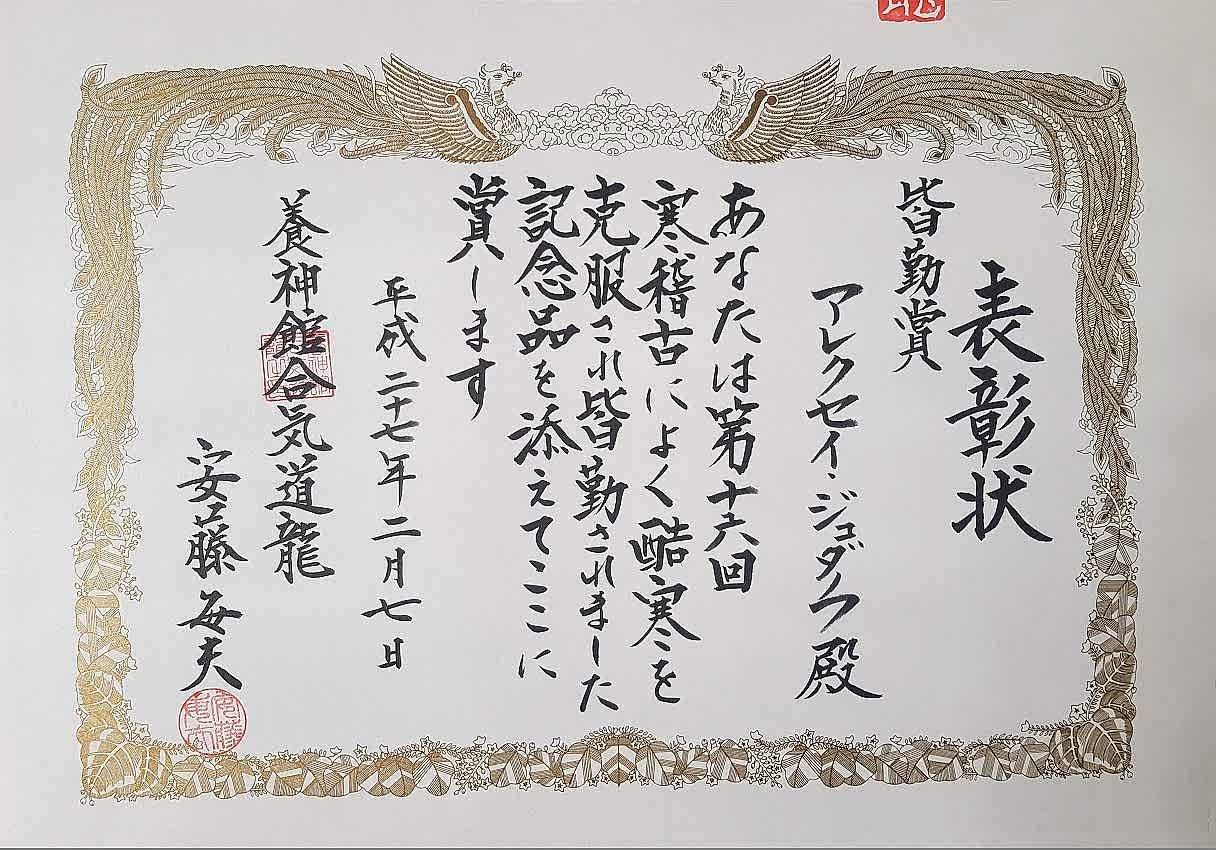 表彰状
皆勤賞
アレクセイ・ジュダノフ殿
あなたは第十六回
寒稽古によく酷寒を
克服され皆勤されました
記念品を添えてここに
賞します
平成二十七年二月七日
養神館合気道龍
安藤毎夫